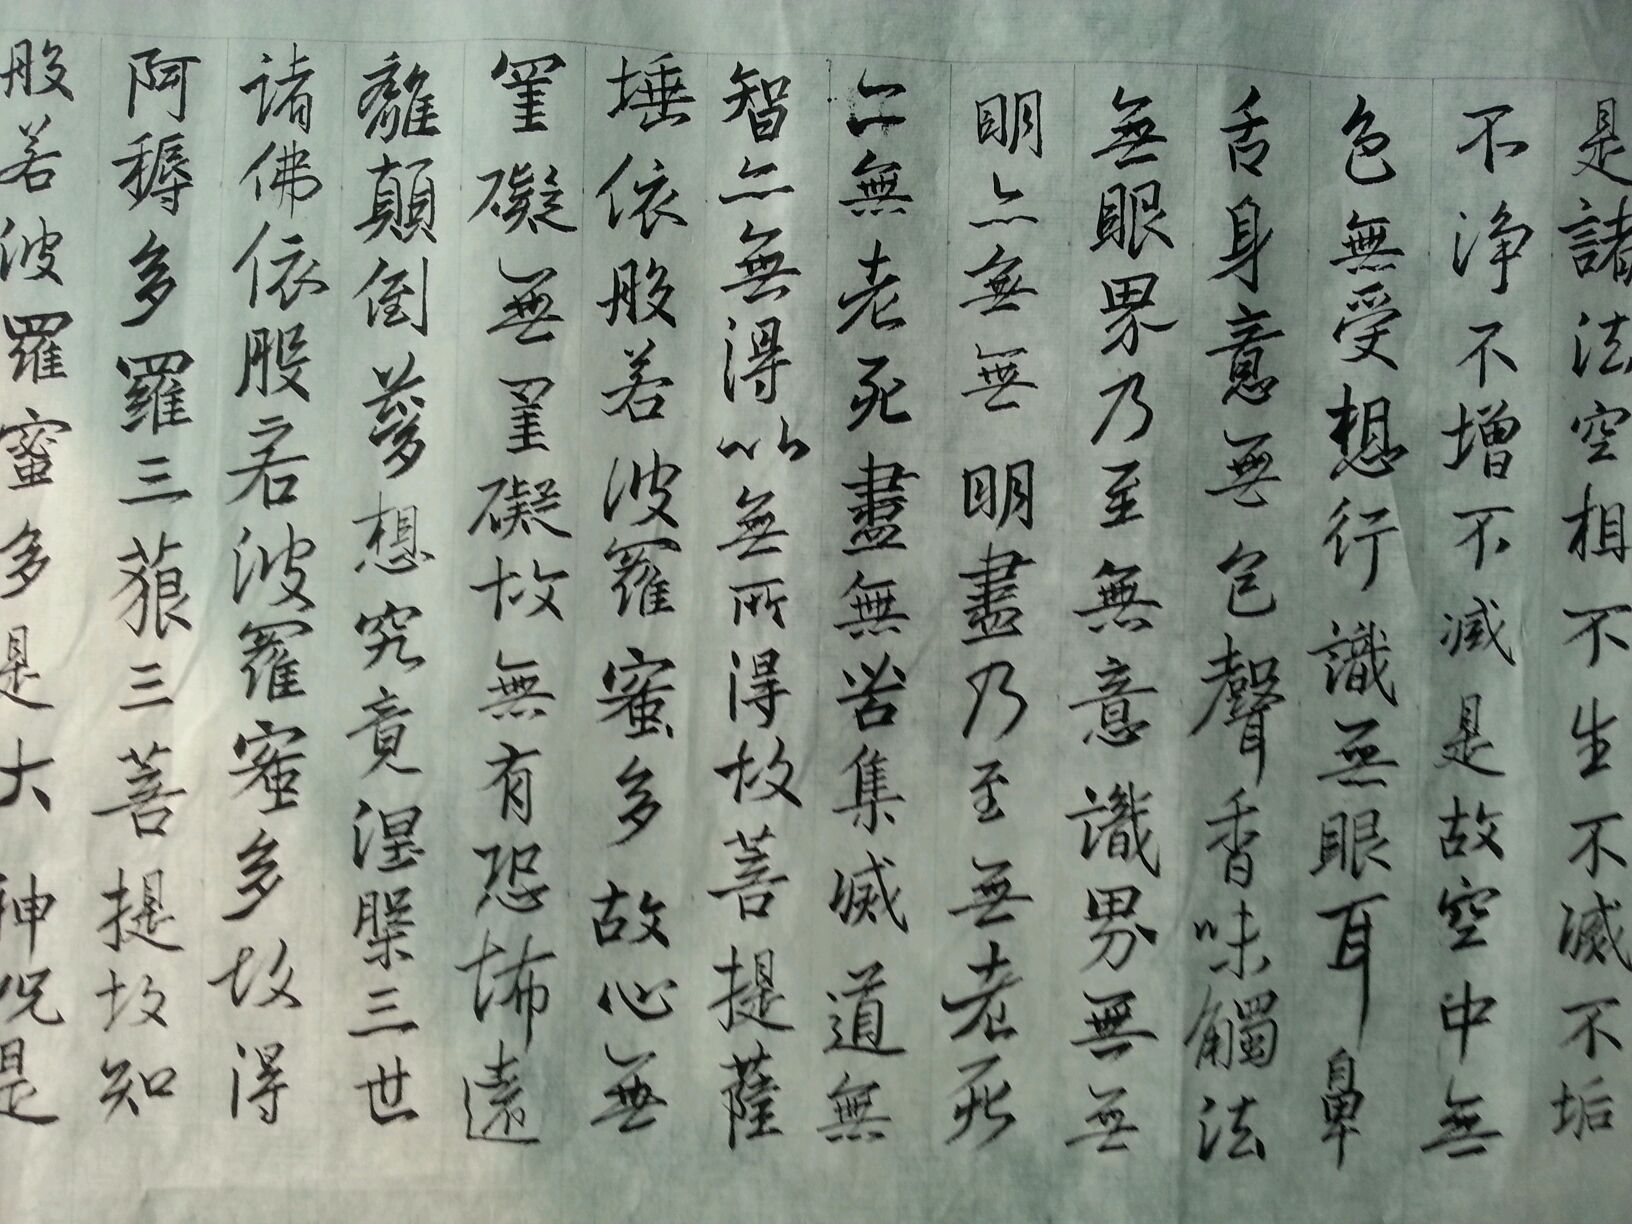 是諸法空相不生不滅不垢
不净不增不減是故空中無
色無受想行識無眼耳鼻
舌身意無色聲香味觸法
無眼界乃至無意識界無無
明亦無無明盡乃至無老死
亦無老死盡無苦集滅道無
智亦無得以無所得故菩提薩
埵依般若波羅蜜多故心無
罣礙無罣礙故無有恐怖遠
離顛倒夢想究竟涅槃三世
諸佛依般若波羅蜜多故得
阿耨多羅三藐三菩提故知
般若波羅蜜多是大神呪是